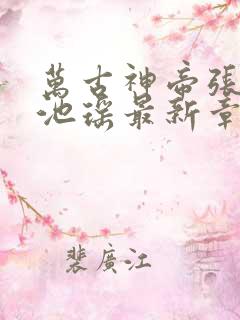 萬古神帝張
池瑤最新章
裴廣江